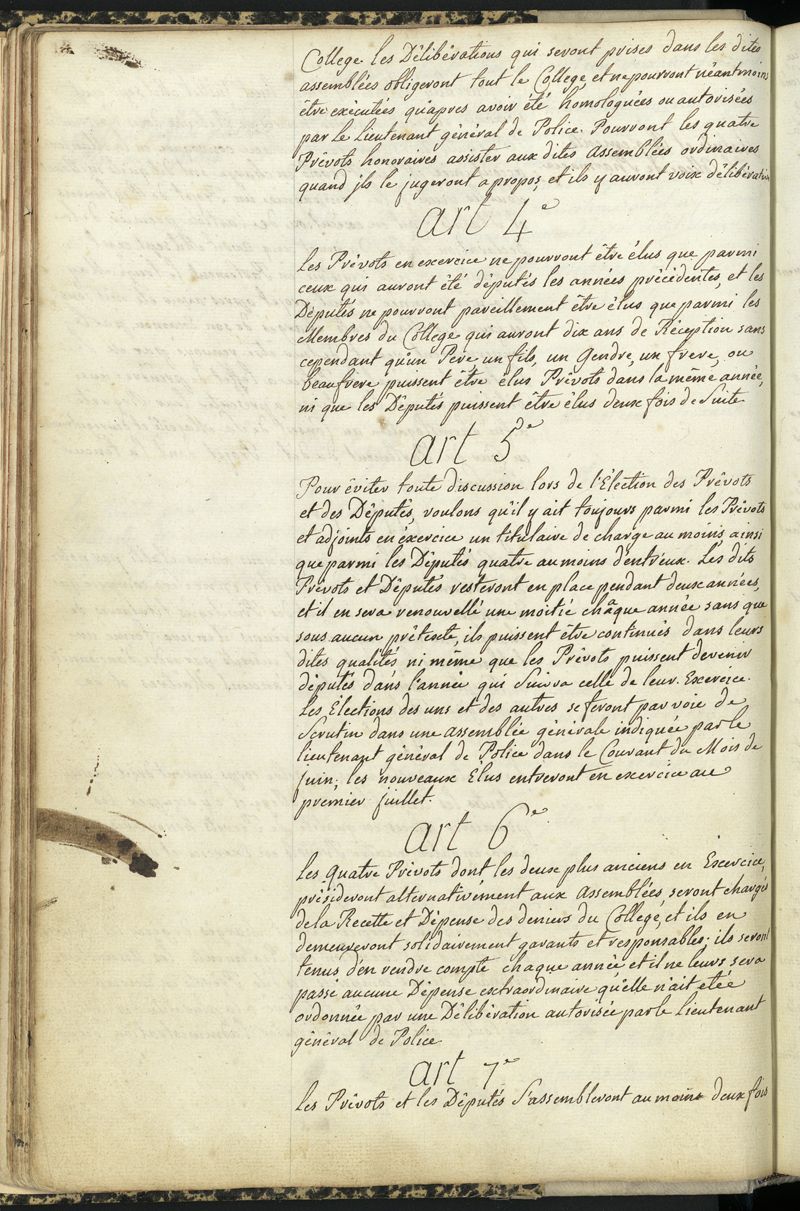 College. les Délibérations qui seront prises dans les dites
assemblées obligeront tout le College et ne pourront néantmoins
être exécutées qu'apres avoir été homologuées ou autorisées
par le Lieutenant général de Police. Pourront les quatre
Prévots honoraires assister aux dites assemblées ordinaires
quand ils le jugeront apropos, et ils y auront voix délibérative
art 4e
Les Prévots en exercice ne pourront être élus que parmi
ceux qui auront été députés les années précédentes, et les
Députés ne pourront pareillement être élus que parmi les
Membres du College qui auront dix ans de Réception sans
cependant qu'un Pere un fils, un Gendre, un frere, ou
beaufrere puissent être élus Prévots dans la même année,
ni que les Députés puissent être élus deux fois de Suite
art 5e
Pour éviter toute discussion lors de l'Election des Prévots
et des Députés, voulons qu'il y ait toujours parmi les Prévots
et adjoints en éxercice un titulaire de charge au moins, ainsi
que parmi les Députés quatre au moins d'entr'eux. Les dits
Prévots et Députés resteront en place pendant deux années,
et il en sera renouvellé une moitié châque année sans que
sous aucun prétexte, ils puissent être continués dans leurs
dites qualités ni même que les Prévots puissent devenir
députés dans l'année qui Suivra celle de leur Exercice.
Les Elections des uns et des autres se feront par voie de
Scrutin dans une assemblée générale indiquée par le
lieutenant général de Police dans le Courant du Mois de
Juin, les nouveaux Elus entreront en exercice au
premier juillet.
art 6e
Les Quatre Prévots dont les deux plus anciens en Exercice,
présideront alternativement aux assemblées, seront chargés
de la Recette et Dépense des deniers du College, et ils en
demeureront solidairement garants et responsables; ils seront
tenus d'en rendre compte chaque année et il ne leurs sera
passé aucune Dépense extraordinaire qu'elle n'ait etée
ordonnée par une Délibération autorisée par le Lieutenant
général de Police
art 7e
Les Prévots et les Députés S'assembleront au moins deux fois